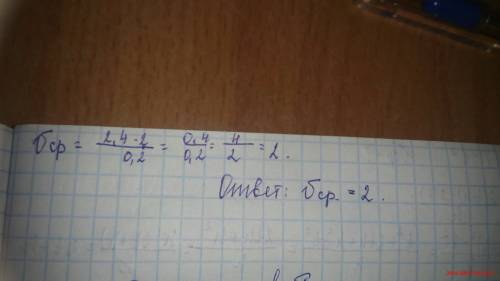 σср = 2,4 - 2 / 0,2 = 0,4 / 0,2 = 4 / 2 = 2.
Ответ: σср. = 2.